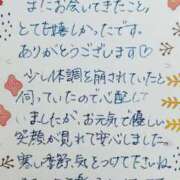 またお会いできたこと、
とても嬉しかったです。
ありがとうございます♡
少し体調を崩されていたと
伺っていたので心配して
いましたが、お元気で優しい
笑顔が見れて安心しました。
寒い季節、気をつけて下さいね。